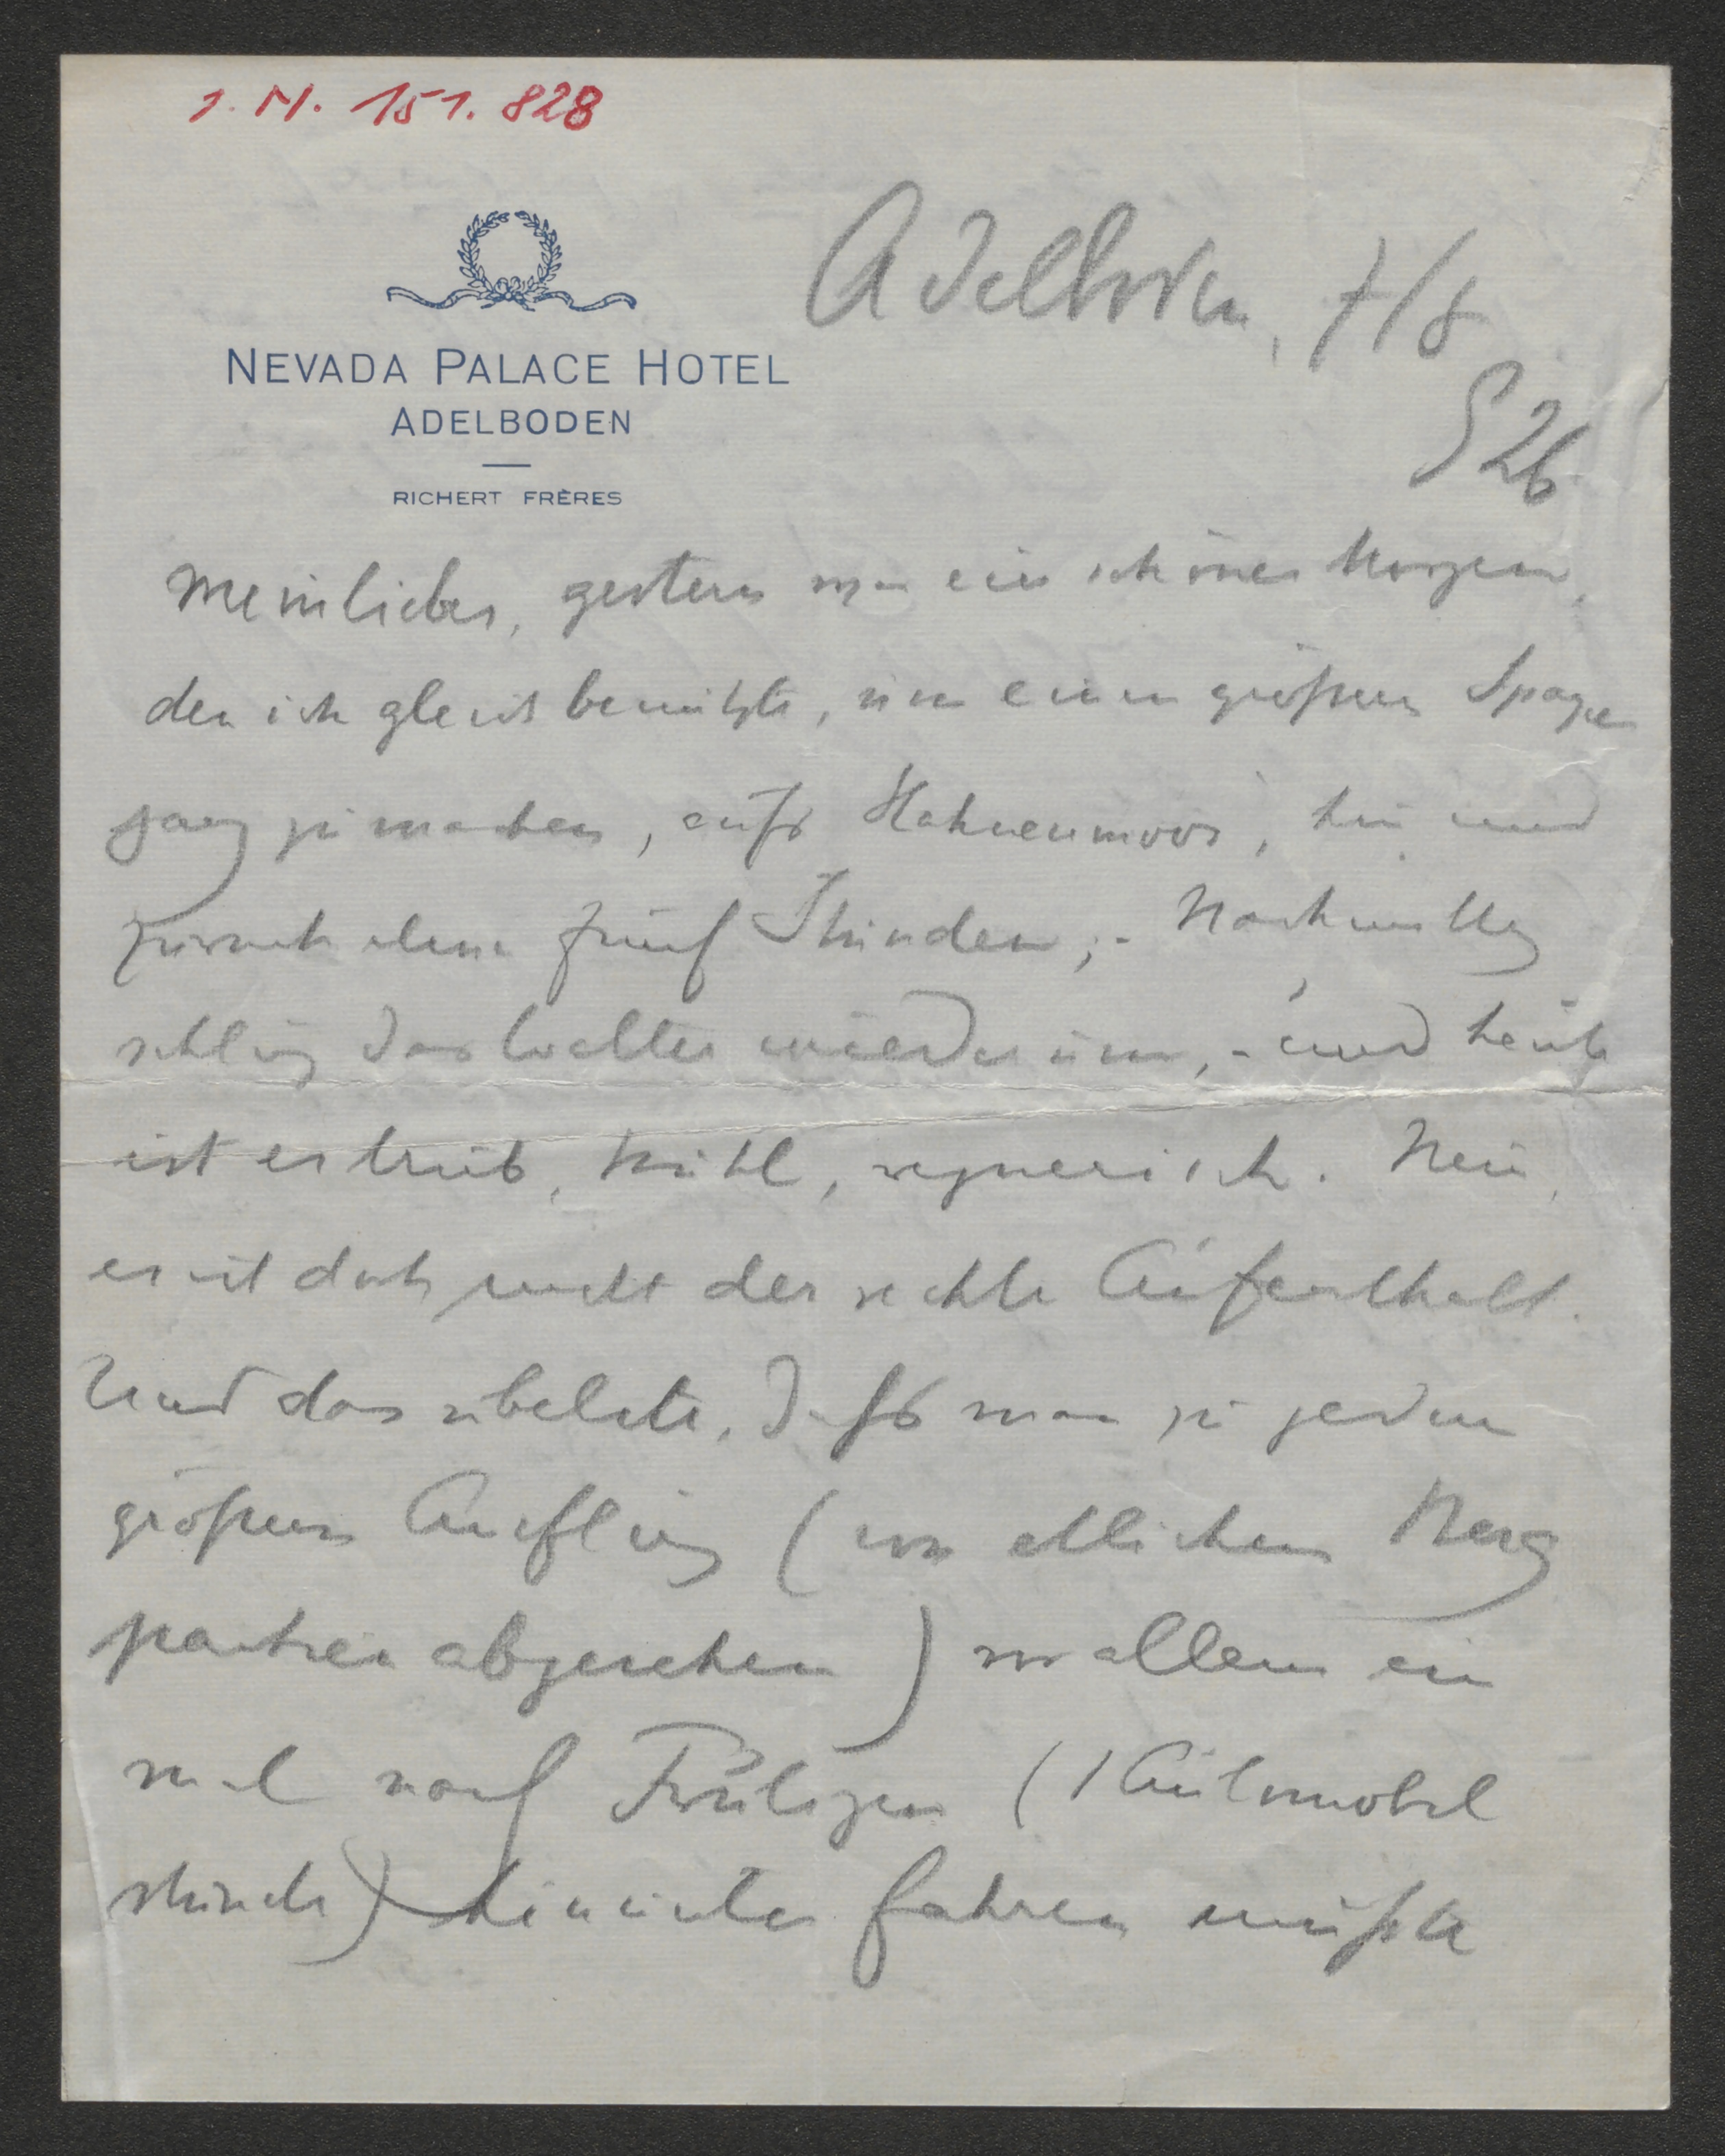 I. N. 151.828
Adelboden, 7/8
926
NEVADA PALACE HOTEL
ADELBODEN
RICHERT FRÈRES
Mein lieber, gestern war ein schöner Morgen,
den ich gleich benützte, um einen größern Spazier
gang zu machen, aufs Hahnenmoos, hin und
zurück etwa fünf Stunden;- Nachmittag
schlug das Wetter wieder um,- und heute
ist es trüb, kühl, regnerisch. Nein,
es ist doch nicht der rechte Aufenthalt.
Und das übelste, dass man zu jedem
größern Ausflug (von etlichen Berg
partien abgesehen) vor allem ein
mal nach Frutigen (1 Automobil
stunde) hinunter fahren müßte